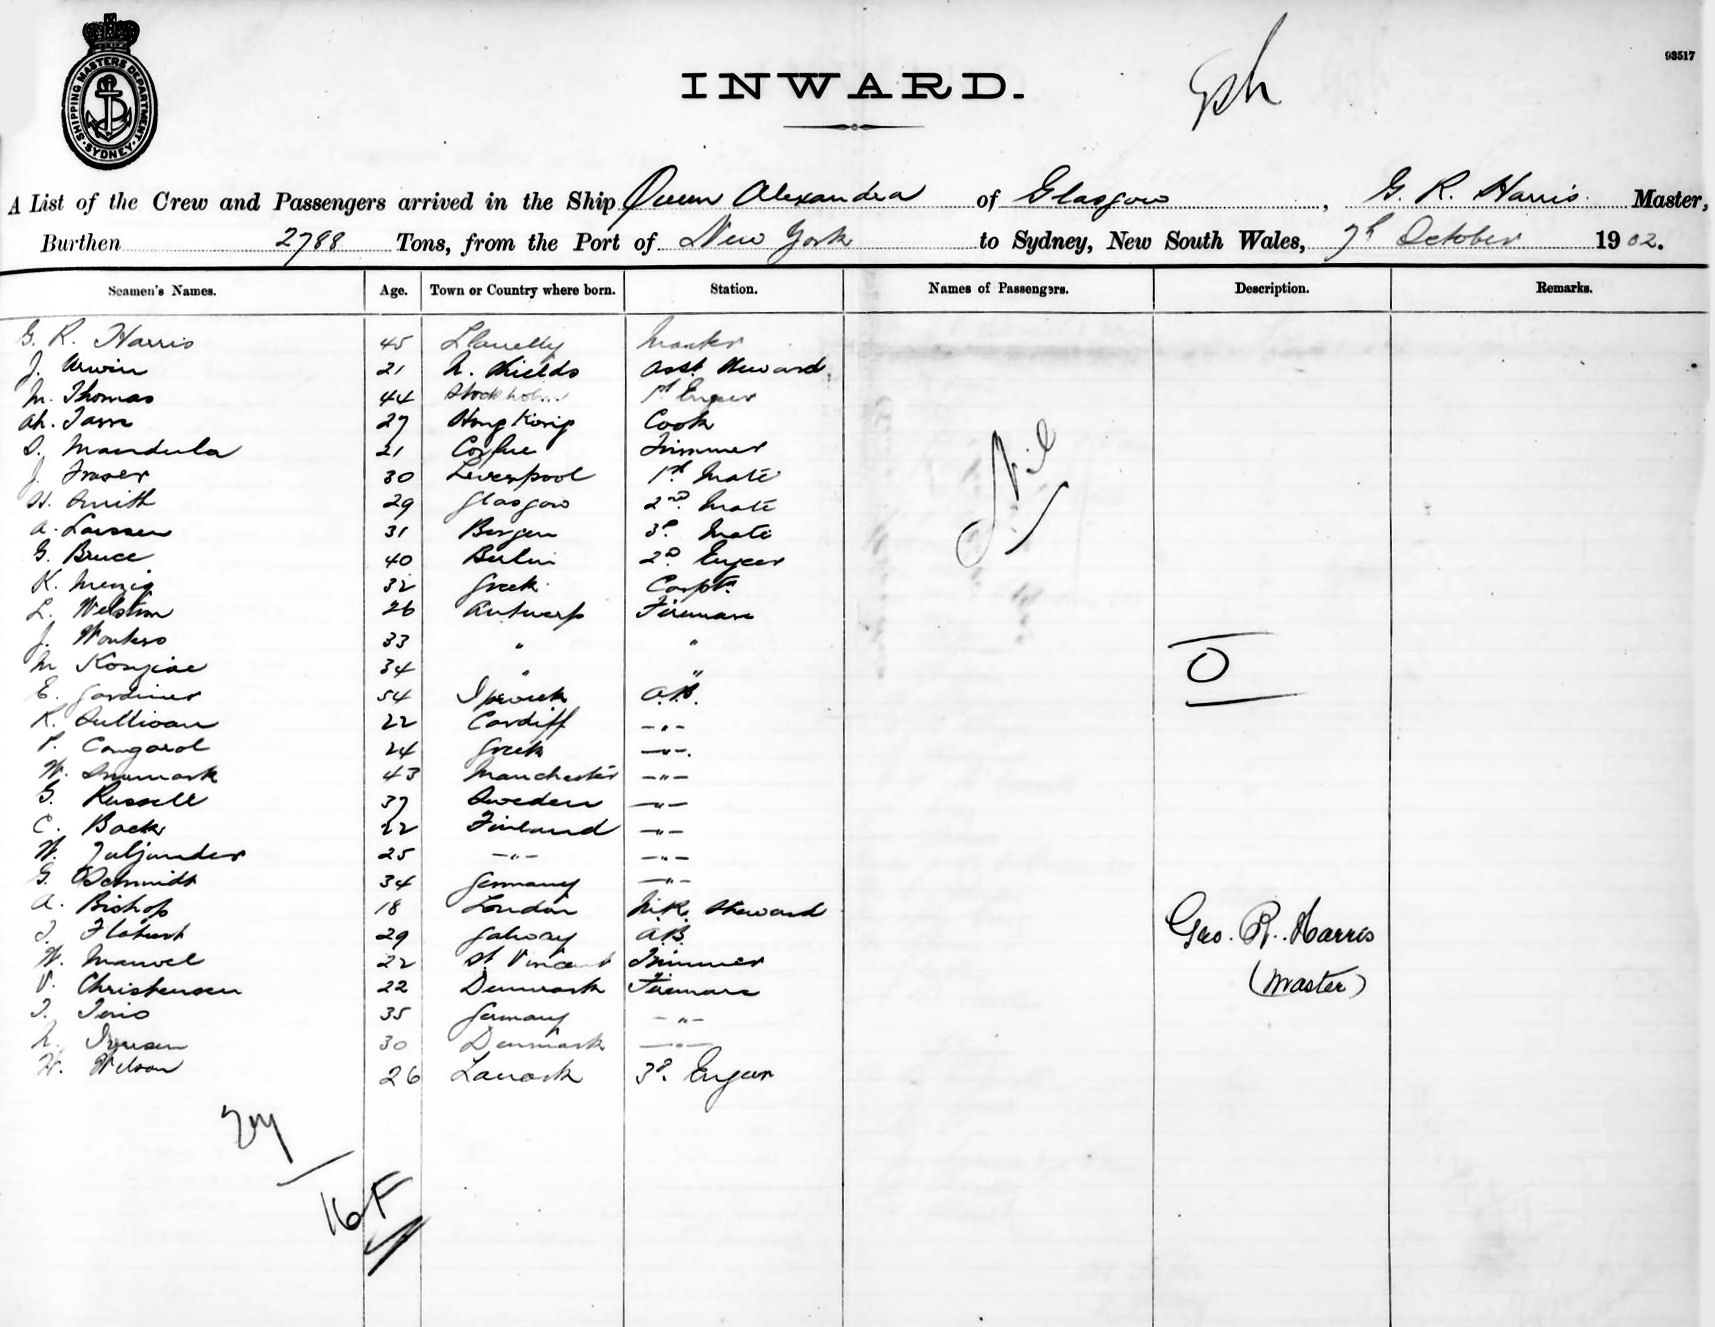 SHIPPING MASTERS DEPARTMENT SYDNEY
93517
INWARD.
A List of the Crew and Passengers arrived in the Ship Queen Alexandra of Glasgow, G. R. Harris. Master,
Burthen 2788 Tons, from the Port of New York to Sydney, New South Wales, 7th October 1902.
Seamen's Names. Age. Town or Country where born. Station. Names of Passengers. Description. Remarks.
G. R. Harris 45 Llanelly Master
J. Urwin 21 N. Shields Asst. Steward
M. Thomas 44 1st Engeer
Ah. 27 Hong Kong Cook
Mandula 21 Corfue Trimmer
J. Fraser 30 Liverpool 1st Mate
H. Smith 29 Glasgow 2nd Mate
A. Larssen 31 Bergen 3d. Mate
G. Bruce 40 Berlin 2d. Engeer
K. 32 Greek Carptr.
L. 26 Antwerp Fireman
J. Wouters 33 " "
M 34 " "
E. Gardiner 54 Ipswich A.B.
K. Sullivan 22 Cardiff -"-
P. 24 Greek -"-
W. 43 Manchester -"-
G. Russell 37 Sweden -"-
C. Back 22 Finland -"-
W. 25 -"- -"-
G. Schmidt 34 Germany -"-
A. Bishop 18 London M.R. Steward
29 Galway A.B.
W. Manuel 22 St Vincent Trimmer
V. Christensen 22 Denmark Fireman
35 Germany -"-
30 Denmark -"-
W. Wilson 26 Lanark 3d. Engeer
Nil
O
Geo. R. Harris
(Master)
16 F